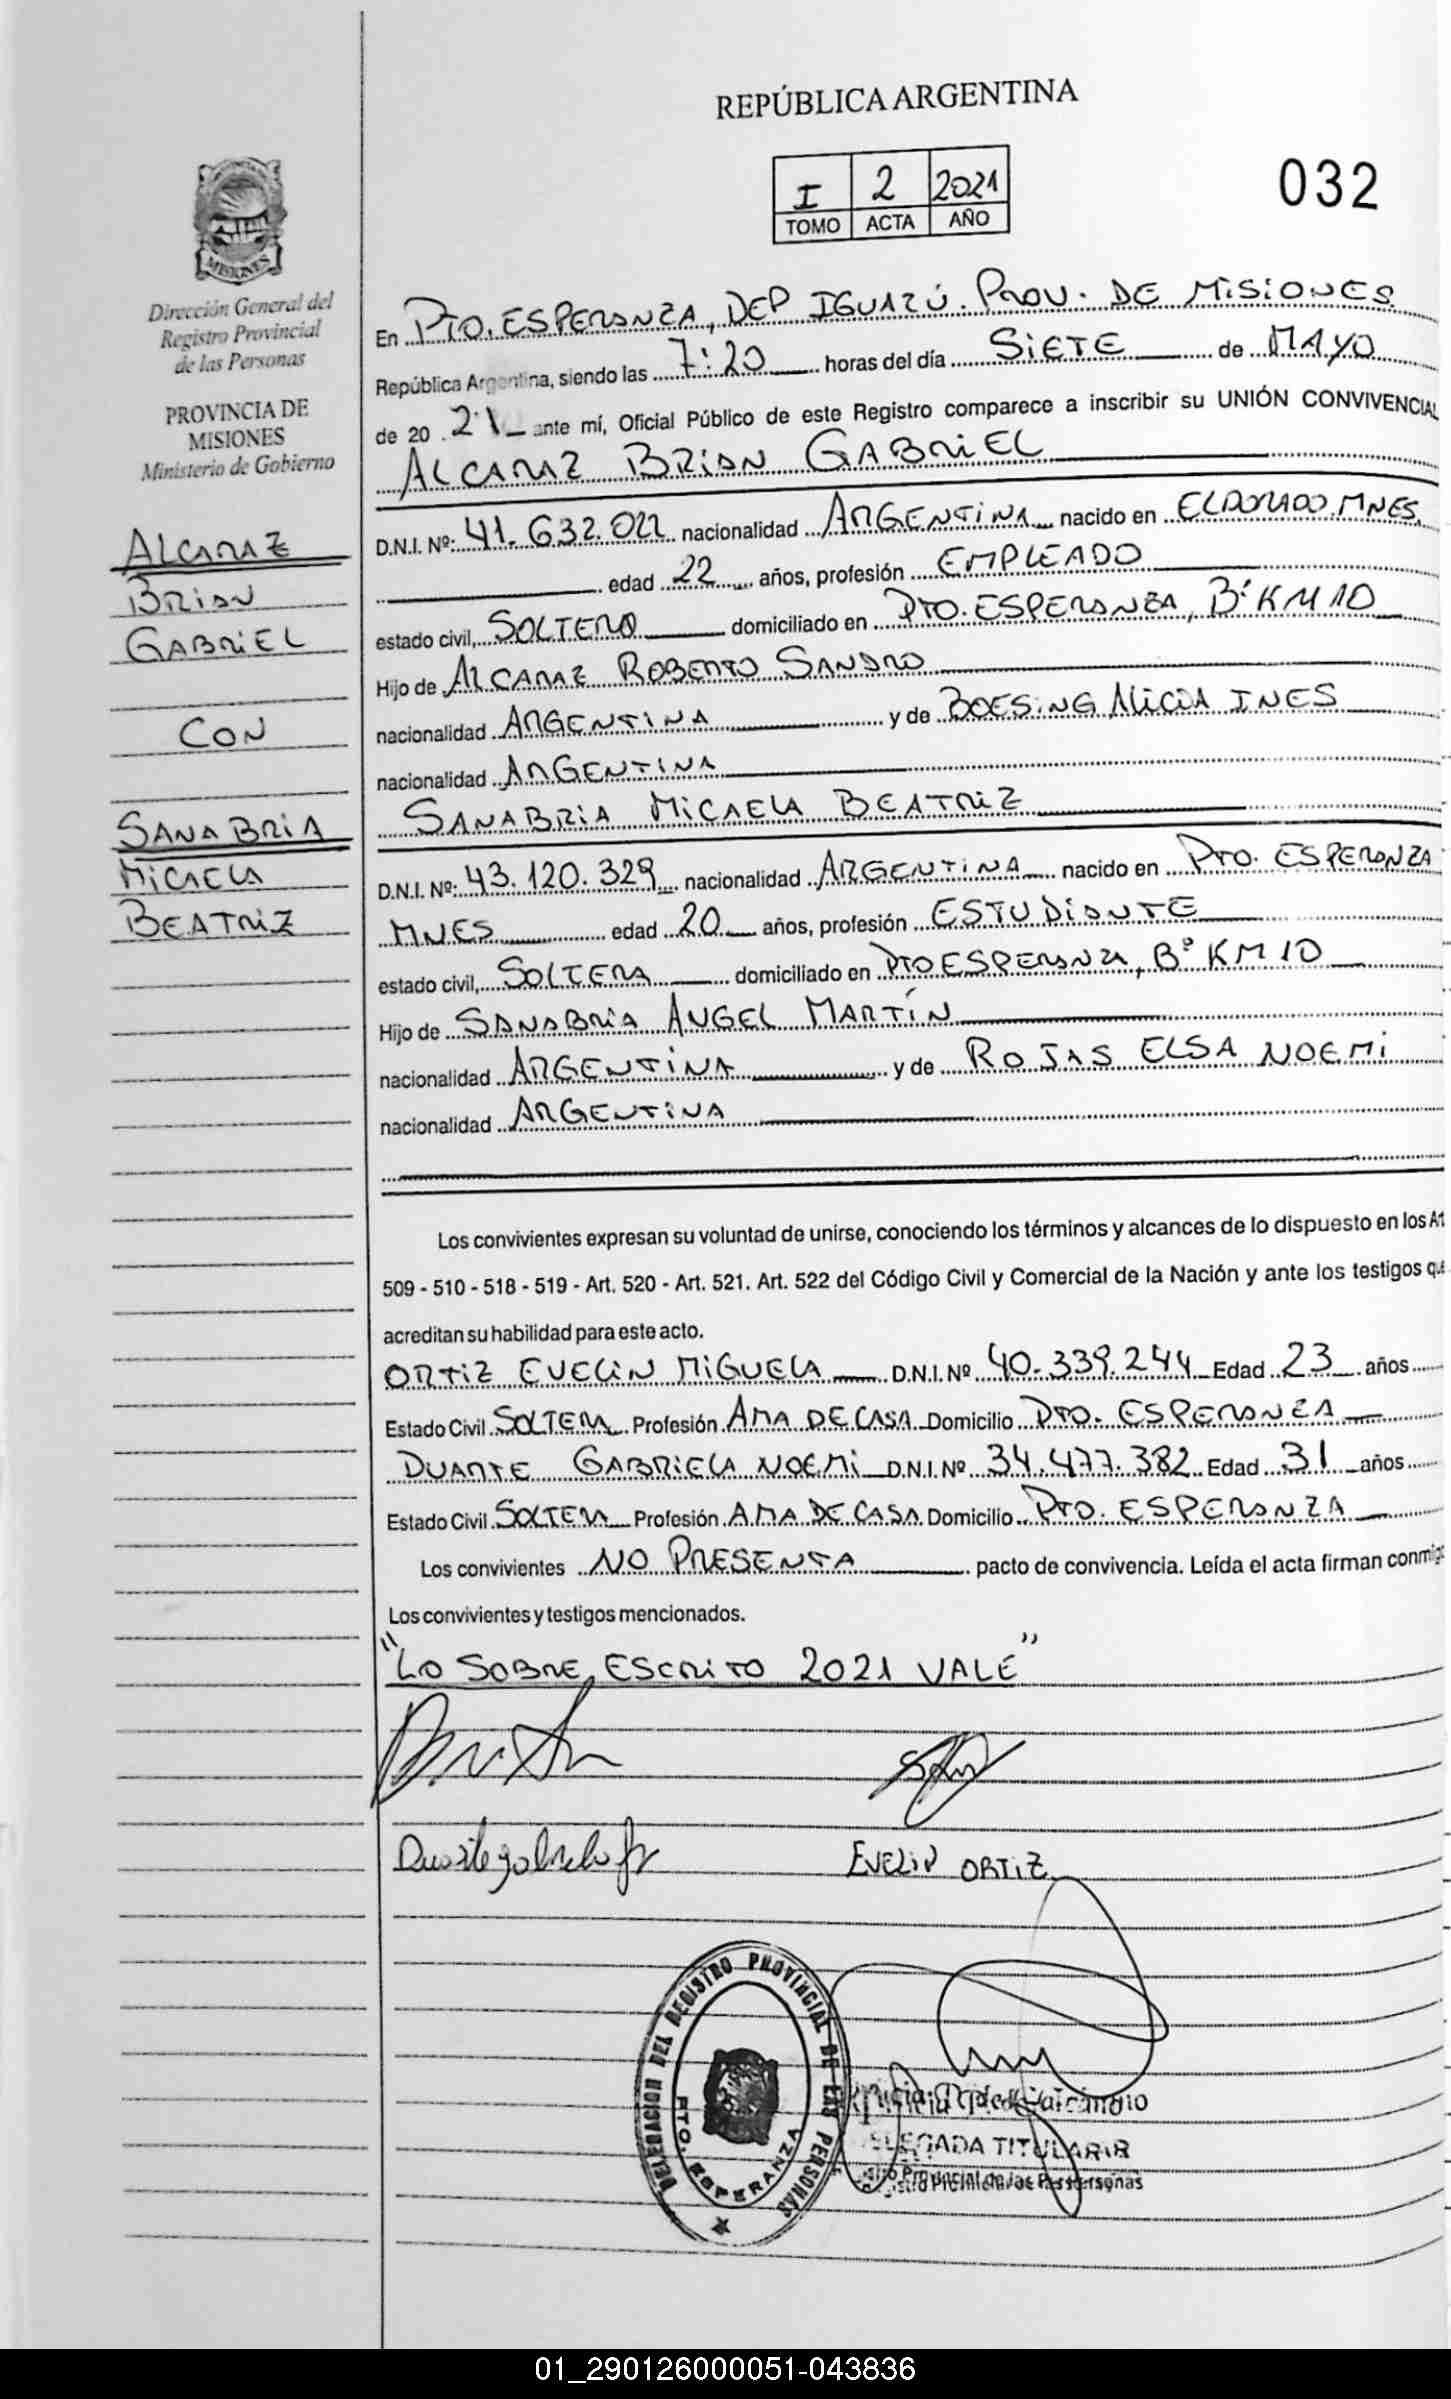 REPÚBLICA ARGENTINA
I 2 2021
TOMO ACTA AÑO
032
MISIONES
Dirección General del
Registro Provincial
de las Personas
PROVINCIA DE
MISIONES
Ministerio de Gobierno
ALCARAZ
BRIAN
GABRIEL
CON
SANABRIA
MICAELA
BEATRIZ
En PTO. ESPERANZA, DEP IGUAZÚ. PROV. DE MISIONES
República Argentina, siendo las 7:20 horas del día SIETE de MAYO
de 20 21 ante mí, Oficial Público de este Registro comparece a inscribir su UNIÓN CONVIVENCIAL
ALCARAZ BRIAN GABRIEL
D.N.I. Nº: 41.632.022 nacionalidad ARGENTINA nacido en ELDORADO MNES
edad 22 años, profesión EMPLEADO
estado civil, SOLTERO domiciliado en PTO. ESPERANZA, Bº KM 10
Hijo de ALCARAZ ROBERTO SANDRO
nacionalidad ARGENTINA y de BOESING ALICIA INES
nacionalidad ARGENTINA
SANABRIA MICAELA BEATRIZ
D.N.I. Nº: 43.120.329 nacionalidad ARGENTINA nacido en PTO. ESPERANZA
MNES edad 20 años, profesión ESTUDIANTE
estado civil, SOLTERA domiciliado en PTO ESPERANZA, Bº KM 10
Hijo de SANABRIA ÁNGEL MARTÍN
nacionalidad ARGENTINA y de ROJAS ELSA NOEMI
nacionalidad ARGENTINA
Los convivientes expresan su voluntad de unirse, conociendo los términos y alcances de lo dispuesto en los
509 - 510 - 518 - 519 - Art. 520 - Art. 521. Art. 522 del Código Civil y Comercial de la Nación y ante los testigos
acreditan su habilidad para este acto.
ORTIZ EVELIN MIGUELA D.N.I. Nº 40.339.244 Edad 23 años
Estado Civil SOLTERA Profesión AMA DE CASA Domicilio PTO. ESPERANZA
DUARTE GABRIELA NOEMI D.N.I. Nº 34.477.382 Edad 31 años
Estado Civil SOLTERA Profesión AMA DE CASA Domicilio PTO. ESPERANZA
Los convivientes NO PRESENTA pacto de convivencia. Leída el acta firman
Los convivientes y testigos mencionados.
"LO SOBRE ESCRITO 2021 VALE"
EVELIN ORTIZ
DELEGACION DEL REGISTRO PROVINCIAL DE LAS PERSONAS
PTO. ESPERANZA
TITULAR
01_290126000051-043836